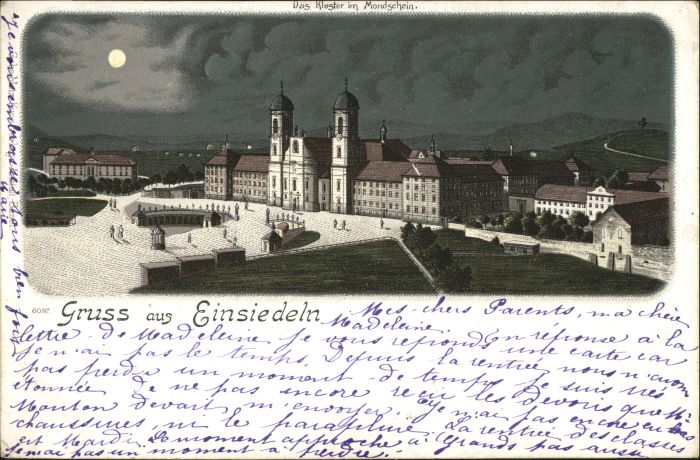 Das Kloster im Mondschein.
Gruss aus Einsiedeln
Mes chers Parents, ma chère
Madeleine
En réponse à la
lettre de Madeleine je vous réponds une carte car
je n'ai pas le temps. Depuis la rentrée nous n'avons
pas perdu un moment de temps. Je suis très
étonnée de ne pas encore reçu les devoirs que Mr
devait m'envoyer. Je n'ai pas encore eu les
chaussures, ni le parapluie. La rentrée des classes
est Mardi. Le moment approche à grands pas aussi
je n'ai pas un moment à perdre.
Je vous embrasse tous bien fort
Marie